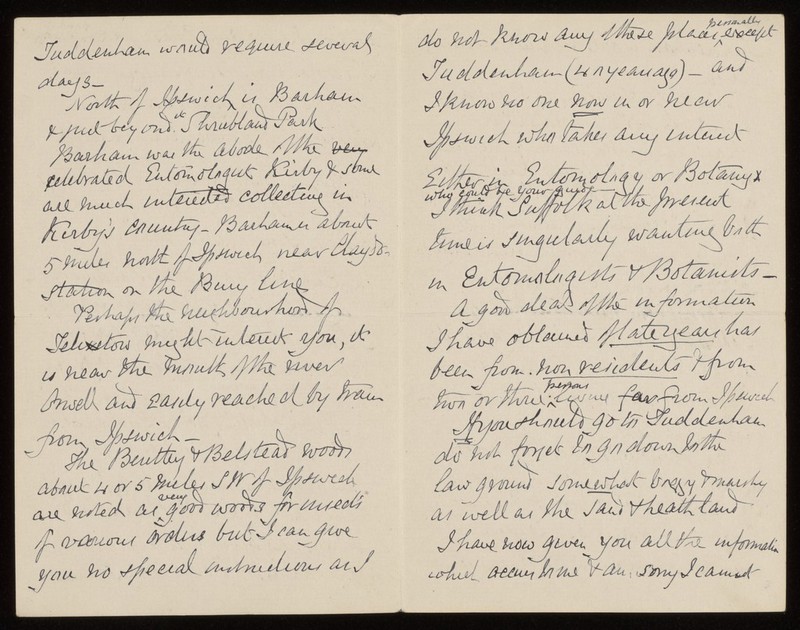 Tuddenham would require several
days–
North of Ipswich is Barham
& just beyond it Shrubland Park
Barham was the abode of the very
celebrated Entomologist Kirby & some
are much interested collecting in
Kirby's country – Barham is about
5 miles north of Ipswich near Claydon
station on the Bury line
Perhaps the neighbourhood of
Felixstow might interest you, it
is near the mouth of the river
Orwell and easily reached by tram
from Ipswich –
The Bentley & Belstead woods
about 4 or 5 miles SW of Ipswich
are noted as very good woods for insects
of various orders but I can give
you no special instructions as I
do not know any of these places personally except
Tuddenham (4 years ago) – and
I know no one now in or near
Ipswich who takes any interest
Either in Entomology or Botany &
who could be your guide
I think Suffolk at the present
time is singularly wanting both
in Entomologists & Botanists –
A good deal of the information
I have obtained of late years has
been from non residents & from
two or three persons living far from Ipswich
If you should go to Tuddenham
do not forget to go down to the
low ground somewhat boggy & marshy
as well as the sand & heath land
I have now given you all the information
which occurs to me & am sorry I cannot